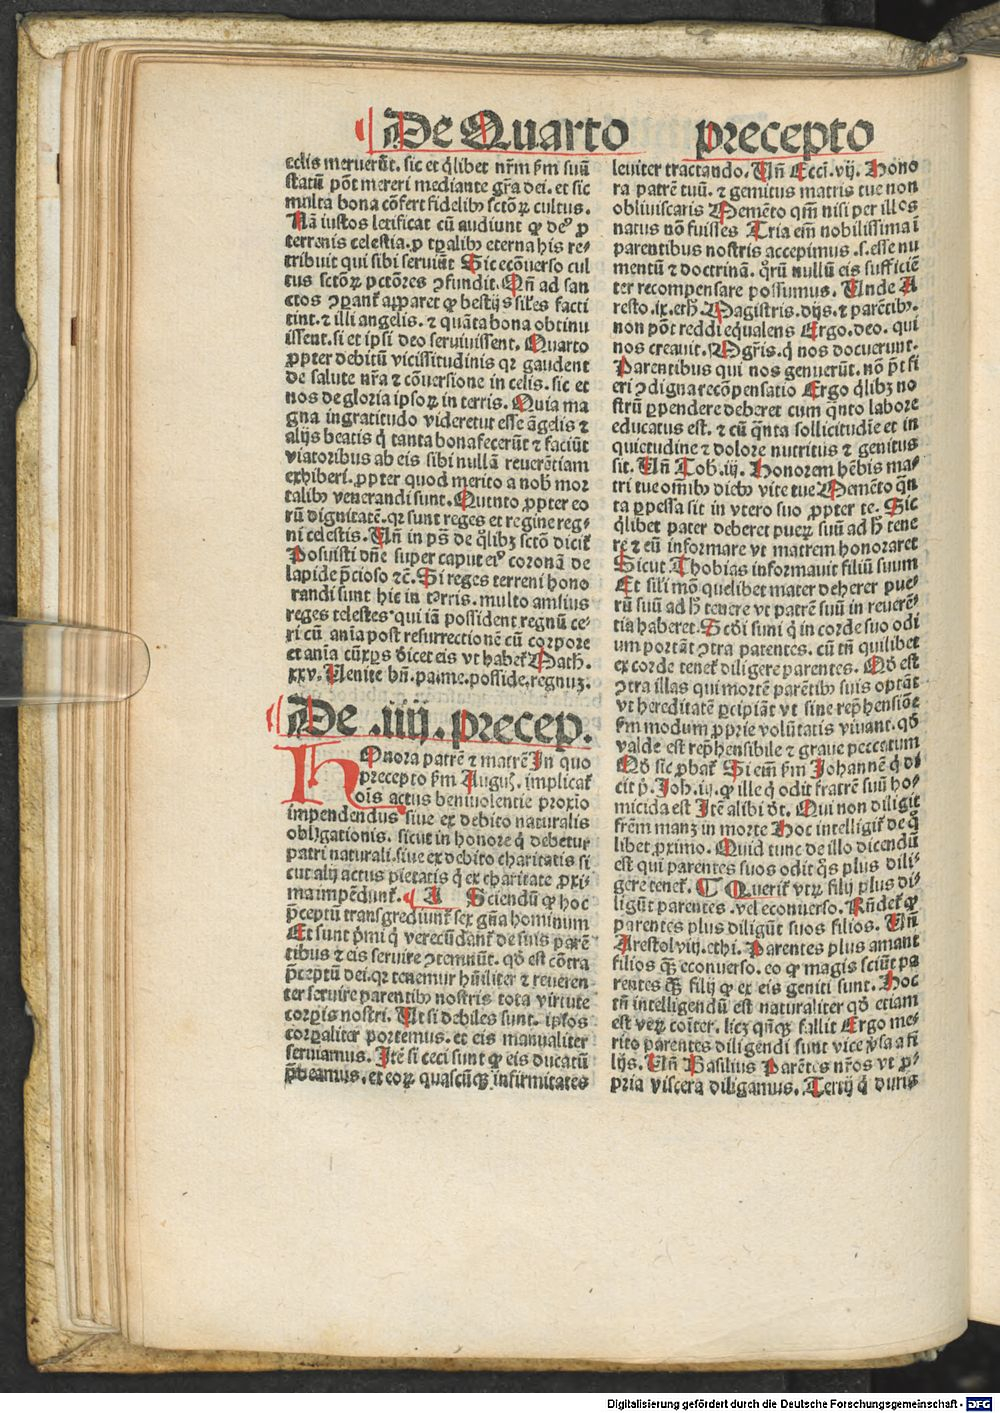 De Quarto precepto
celis meruerūt. sic et q̄libet nr̄m ẜm suū
statū pōt mereri mediante gr̄a dei. et sic
multa bona cōfert fidelibꝰ sctōꝝ cultus.
Nā iustos letificat cū audiunt ꝙ deꝰ ꝓ
terrenis celestia. ꝓ tꝑalibꝰ eterna his re⸗
tribuit qui sibi seruiūt Sic ecōuerso cul
tus sctōꝝ pctōres ꝯfundit. Qn̄ ad san
ctos ꝯꝑant̉ apparet ꝙ bestijs siles facti
sint. ⁊ illi angelis. ⁊ quāta bona obtinu
issent. si et ipsi deo seruiuissent. Quarto
ꝓpter debitū vicissitudinis qꝛ gaudent
de salute nr̄a ⁊ cōuersione in celis. sic et
nos de gloria ipsoꝝ in terris. Quia ma
gna ingratitudo videretur esse āgelis ⁊
alijs beatis q̄ tanta bona fecerūt ⁊ faciūt
viatoribus ab eis sibi nullā reuerētiam
exhiberi. ꝓpter quod merito a nob̄ mor
talibꝰ venerandi sunt. Quinto ꝓpter eo
rū dignitatē. qꝛ sunt reges et regine reg⸗
ni celestis. Un̄ in ps̄ de q̄libꝫ sctō dicit̉
Posuisti dn̄e super caput eiꝰ coronā de
lapide p̄cioso ⁊c̄. Si reges terreni hono
randi sunt hic in terris. multo amlius
reges celestes qui iā possident regnū ce
li cū anīa post resurrectionē cū corpore
et anīa cū xp̄s dicet eis vt habet̉ Math.
xxv. Uenite bn̄. pa. me. posside. regnuꝫ.
De .iiij. precep.
HOnora patrē ⁊ matrē In quo
precepto ẜm Auguꝫ. implicat̉
oīs actus beniuolentie proxīo
impendendus siue ex debito naturalis
obligationis. sicut in honore q̄ debetur
patri naturali. siue ex debito charitatis si
cut alij actus pietatis q̄ ex charitate ꝓxi⸗
ma impēdunt̉. A Sciendū ꝙ hoc
p̄ceptū transgrediunt̉ sex gn̄a hominum
Et sunt p̄mi q̄ verecūdant̉ de suis parē
tibus ⁊ eis seruire ꝯtemnūt. qd̄ est cōtra
p̄ceptū dei. qꝛ tenemur hūiliter ⁊ reueren⸗
ter seruire parentibꝰ nostris tota virtute
corꝑis nostri. Ut si debiles sunt. ip̄sos
corꝑaliter portemus. et eis manualiter
seruiamus. Itē si ceci sunt ꝙ eis ducatū
p̄beamus. et eoꝝ quascūqꝫ infirmitates
leuiter tractando. Un̄ Eccl. vij. Hono
ra patrē tuū. ⁊ gemitus matris tue non
obliuiscaris Memēto qm̄ nisi per illos
natus nō fuisses Tria em̄ nobilissima ī
parentibus nostris accepimus .s. esse nu
mentū ⁊ doctrinā. qꝛū nullū eis sufficiē
ter recompensare possumus. Unde A
resto. ix. eth̄. Magistris. dijs. ⁊ parētibꝰ.
non pōt reddi equalens Ergo. deo. qui
nos creauit. Mgr̄is. q̄ nos docuerunt.
Parentibus qui nos genuerūt. nō p̄t fi
eri ꝯdigna recōpensatio Ergo q̄libꝫ no
strū ꝑpendere deberet cum q̄nto labore
educatus est. ⁊ cū q̄nta sollicitudīe et in
quietudine ⁊ dolore nutritus ⁊ genitus
sit. Un̄ Tob. iij. Honorem hēbis ma⸗
tri tue om̄ibꝰ diebꝰ vite tue Memēto q̄n
ta ꝑpessa sit in vtero suo ꝓpter te. Sic
q̄libet pater deberet pueꝝ suū ad h̄ tene
re ⁊ eū informare vt matrem honoraret
Sicut Thobias informauit filiū suum
Et sili mō quelibet mater deberer pue⸗
rū suū ad h̄ tenere vt patrē suū in reuerē⸗
tia haberet. Scdi sunt q̄ in corde suo odi
um portāt ꝯtra patentes. cū tn̄ quilibet
ex corde tenet̉ diligere parentes. Qd̄ est
ꝯtra illas qui mortē parētibꝰ suis optāt
vt hereditatē ꝑcipiāt vt sine rep̄hensiōe
ẜm modum ꝓprie volūtatis viuant. qd̄
valde est rep̄hensibile ⁊ graue peccatum
Qd̄ sic ꝓbat̉ Si em̄ ẜm Johannē q̄ di
cit p̄. Joh. iij. ꝙ ille q̄ odit fratrē suū ho⸗
micida est Itē alibi dt̄. Qui non diligit
frēm manꝫ in morte Hoc intelligit̉ de q̄
libet ꝓximo. Quid tunc de illo dicendū
est qui parentes suos odit q̄s plus dili⸗
gere tenet̉. C Querit̉ vtꝝ filij plus di⸗
ligūt parentes .vel econuerso. Rn̄det̉ ꝙ
parentes plus diligūt suos filios. Un̄
Arestol viij. ethi. Parentes plus amant
filios qꝫ̄ econuerso. eo ꝙ magis sciūt pa
rentes qꝫ̄ filij ꝙ ex eis geniti sunt. Hoc
tn̄ intelligendū est naturaliter qd̄ etiam
est veꝝ cōiter. licꝫ qn̄qꝫ fallit Ergo me⸗
rito parentes diligendi sunt vice ꝟsa a fi
lijs. Un̄ Basilius Parētes nr̄os vt ꝓ⸗
pria viscera diligamus. Tertij q̄ duris
Digitalisierung gefördert durch die Deutsche Forschungsgemeinschaft - DFG